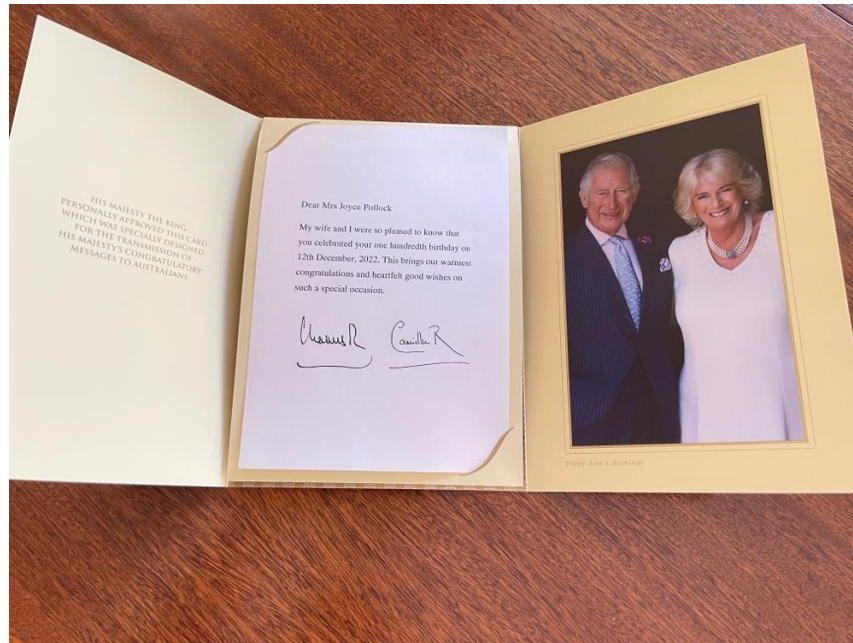 HIS MAJESTY THE KING
PERSONALLY APPROVED THIS CARD
WHICH WAS SPECIALLY DESIGNED
FOR THE TRANSMISSION OF
HIS MAJESTY'S CONGRATULATORY
MESSAGES TO AUSTRALIANS.
Dear Mrs Joyce Pollock
My wife and I were so pleased to know that
you celebrated your one hundredth birthday on
12th December, 2022. This brings our warmest
congratulations and heartfelt good wishes on
such a special occasion.
Charles R
Camilla R
Photo: Alexi Lubomirski